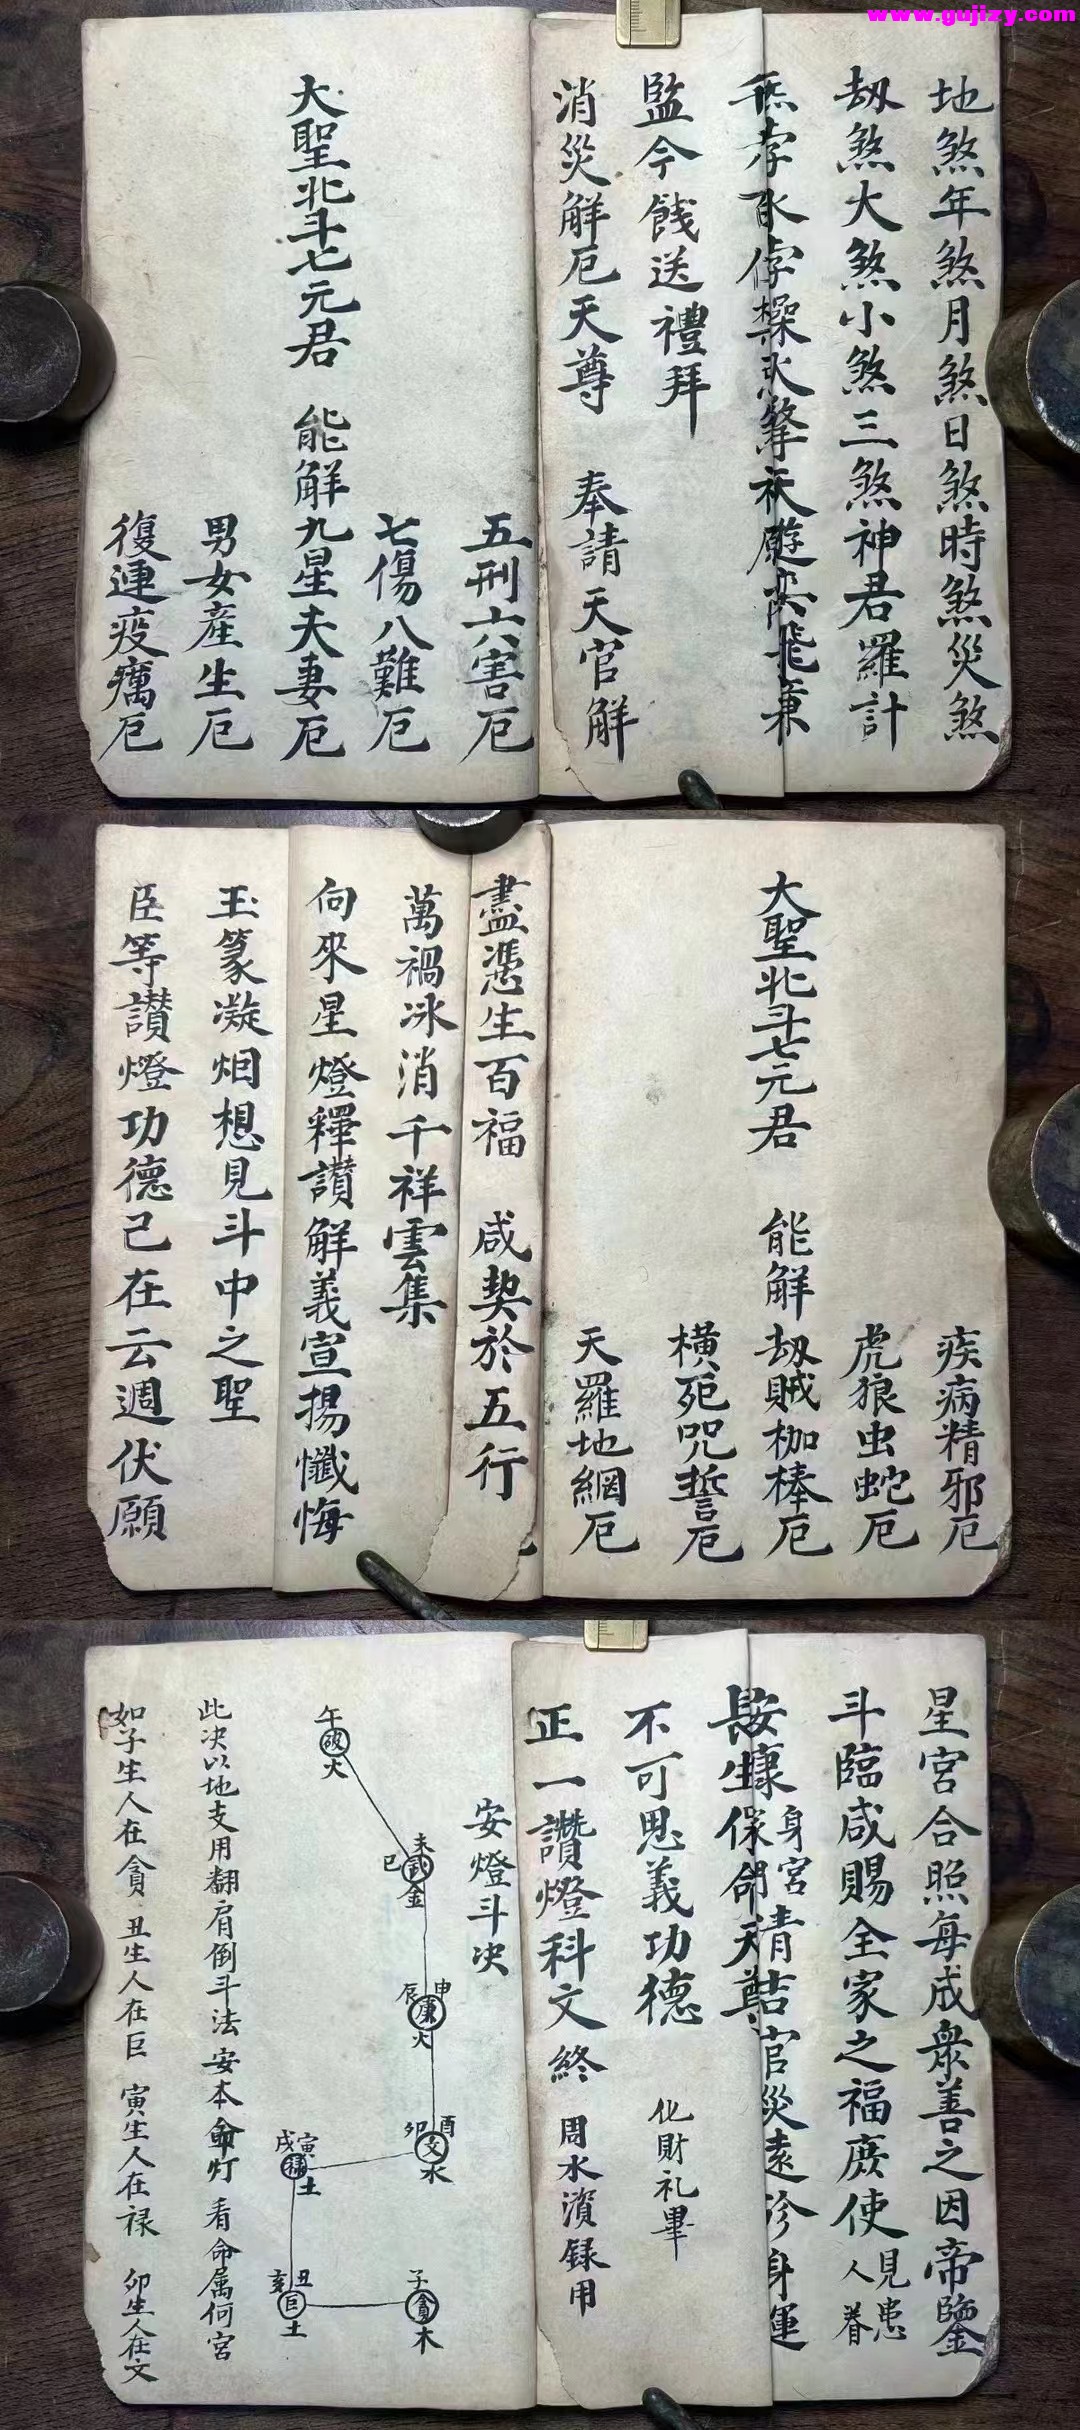 www.gujizy.com
地煞年煞月煞日煞時煞災煞
劫煞大煞小煞三煞神君羅計
監今餞送禮拜
消災解厄天尊 奉請天官解
五刑六害厄
七傷八難厄
大聖北斗七元君 能解九星夫妻厄
男女產生厄
復連疫癘厄
疾病精邪厄
虎狼虫蛇厄
大聖北斗七元君 能解劫賊枷棒厄
橫死咒誓厄
天羅地網厄
盡憑生百福 咸契於五行
萬禍冰消千祥雲集
向來星燈釋讚解義宣揚懺悔
玉篆凝烟想見斗中之聖
臣等讃燈功德己在云週伏願
星宮合照每成衆善之因帝鑒
斗臨咸賜全家之福庶使見患人眷
身宮清吉官災遠
身運
長生保命天尊
不可思義功德 化財礼畢
正一讚燈科文終 周水濱録用
安燈斗决
午
破
火
未
巳
武
金
申
辰
廉
火
酉
卯
文
水
寅
戌
祿
土
丑
亥
巨
土
子
貪
木
此决以地支用翻肩倒斗法安本命灯 看命属何宮
如子生人在貪 丑生人在巨 寅生人在禄 卯生人在文